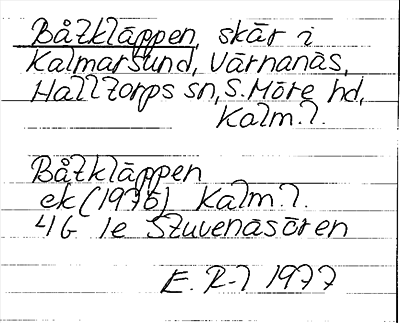 Båtkläppen, skär i
Kalmarsund, Värnanäs,
Halltorps sn, S. Möre hd,
Kalm. l.
Båtkläppen
ek (1976) Kalm. l.
4G 1e Stuvenäsören
E. R-l 1977